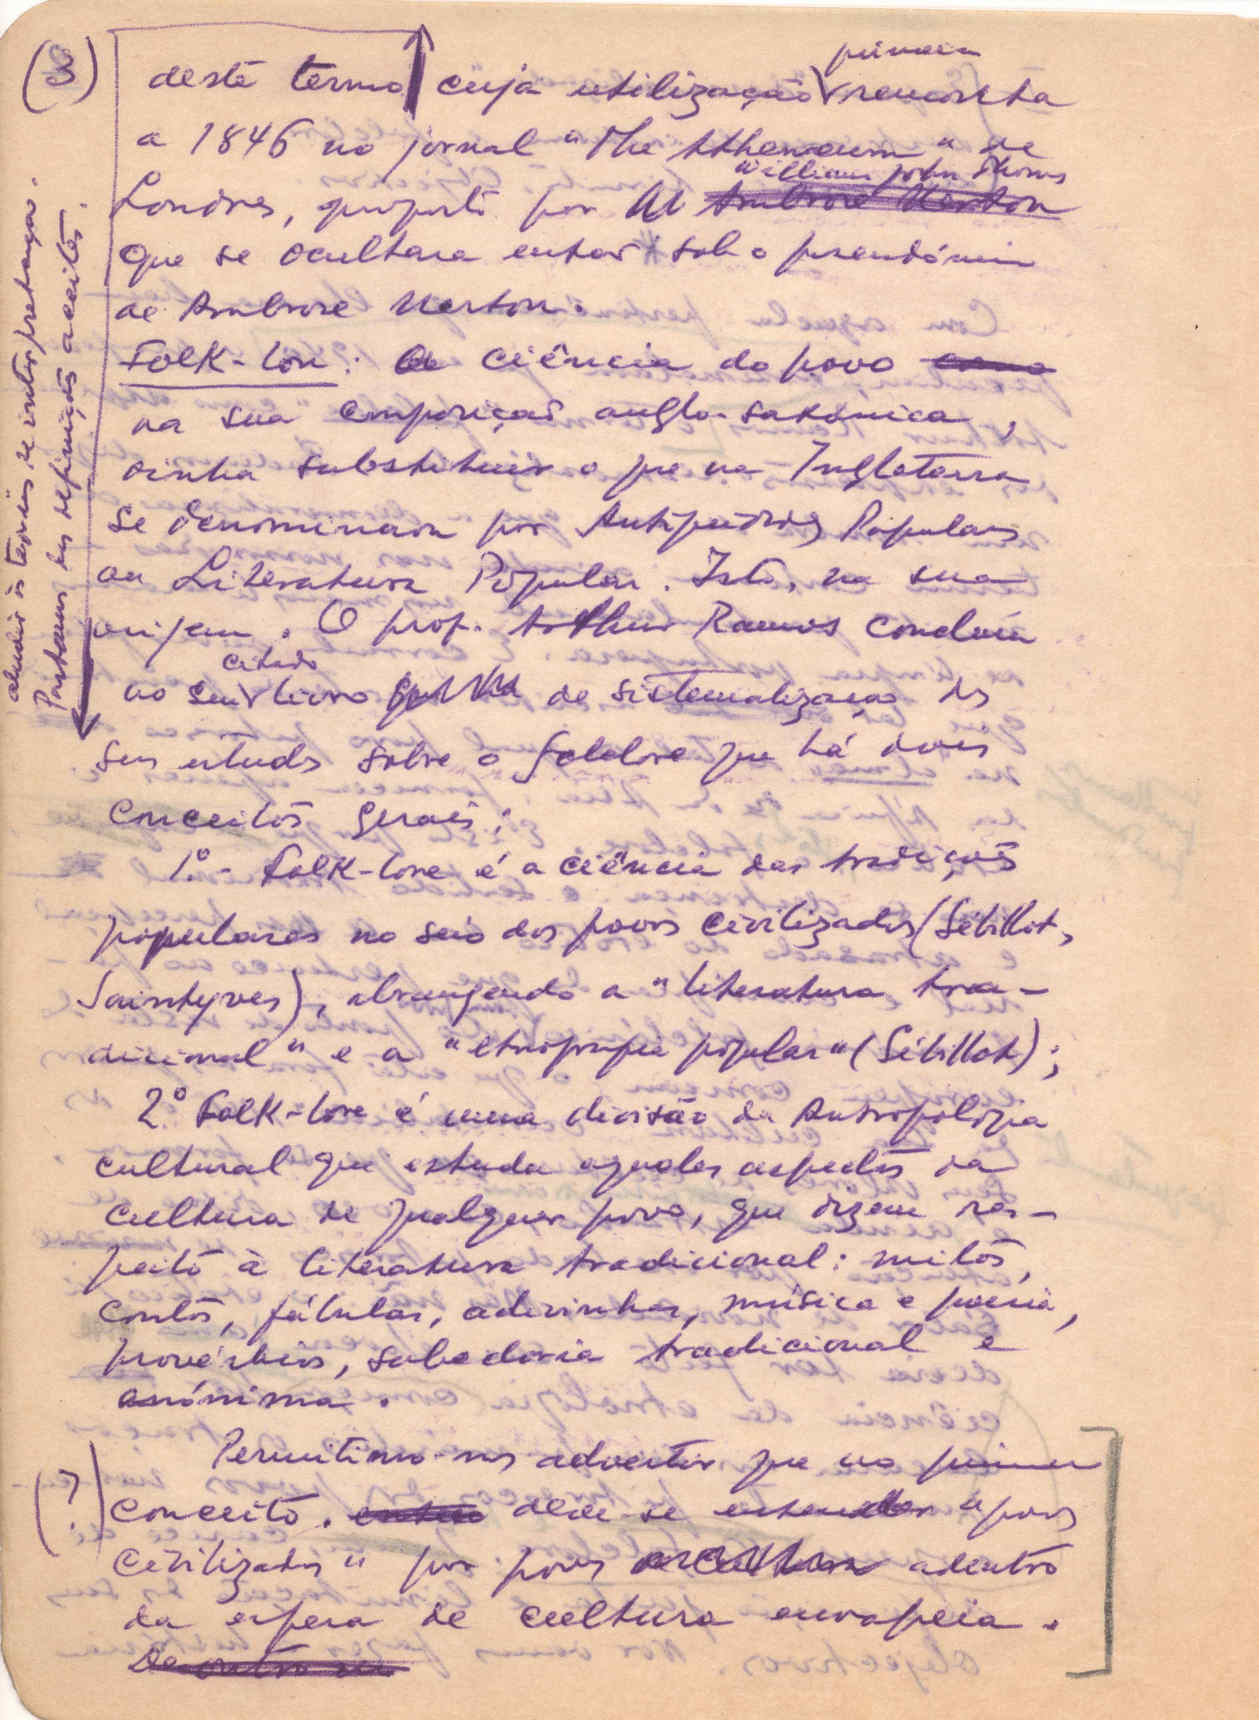 (3)
deste termo cuja utilização primeira remonta
a 1846 no jornal "The Athenaeum" de
Londres, proposto por W William John Thoms Ambrose Merton
que se ocultara então sob o pseudónimo
de Ambrose Merton.
Folk-lore: a ciência do povo como
na sua composição anglo-saxónica,
vinha substituir o que na Inglaterra
se denominava por Antiguidades Populares
ou Literatura Popular. Isto, na sua
origem. O prof. Arthur Ramos concluiu
no seu citado livro de sistematização dos
seus estudos sobre o folclore que há dois
conceitos gerais:
1.º - Folk-lore é a ciência das tradições
populares no seio dos povos civilizados (Sébillot,
Saintyves), abrangendo a "literatura tra-
dicional" e a "etnografia popular" (Sébillot);
2.º Folk-lore é uma divisão da Antropologia
cultural que estuda aqueles aspectos da
cultura de qualquer povo, que dizem res-
peito à literatura tradicional: mitos,
contos, fábulas, adivinhas, música e poesia,
provérbios, sabedoria tradicional e
anónima.
Permitimo-nos advertir que no primeiro
(?) conceito. deve-se entender "povos
civilizados" por povos adentro
da esfera de cultura europeia.
De outro
aludir às teorias de interpretação.
Partamos das definições aceites.